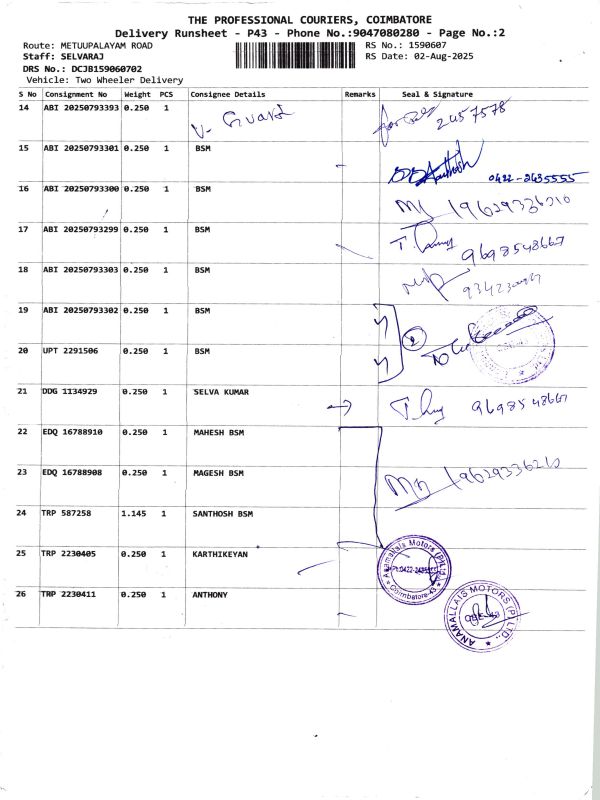 THE PROFESSIONAL COURIERS, COIMBATORE
Delivery Runsheet - P43 - Phone No.:9047080280 - Page No.:2
Route: METUUPALAYAM ROAD
RS No.: 1590607
Staff: SELVARAJ
RS Date: 02-Aug-2025
DRS No.: DCJB159060702
Vehicle: Two Wheeler Delivery
S No Consignment No Weight PCS Consignee Details Remarks Seal & Signature
14 ABI 20250793393 0.250 1 V- Guard 2457578
15 ABI 20250793301 0.250 1 BSM 0422-2435555
16 ABI 20250793300 0.250 1 BSM 9629336210
17 ABI 20250793299 0.250 1 BSM 9698548667
18 ABI 20250793303 0.250 1 BSM
19 ABI 20250793302 0.250 1 BSM
20 UPT 2291506 0.250 1 BSM 2
21 DDG 1134929 0.250 1 SELVA KUMAR 9698548667
22 EDQ 16788910 0.250 1 MAHESH BSM
23 EDQ 16788908 0.250 1 MAGESH BSM 9629336210
24 TRP 587258 1.145 1 SANTHOSH BSM
25 TRP 2230405 0.250 1 KARTHIKEYAN
Anamallais Motors (P) Ltd
Coimbatore-43
26 TRP 2230411 0.250 1 ANTHONY
ANAMALLAIS MOTORS (P) LTD.,
CBE-43